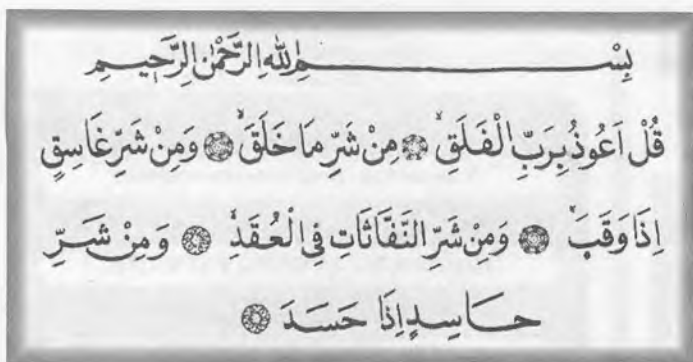 بِسْمِ اللهِ الرَّحْمٰنِ الرَّحٖيمِ
قُلْ اَعُوذُ بِرَبِّ الْفَلَقِۙ ۝ مِنْ شَرِّ مَا خَلَقَۙ ۝ وَمِنْ شَرِّ غَاسِقٍ
اِذَا وَقَبَۙ ۝ وَمِنْ شَرِّ النَّفَّاثَاتِ فِي الْعُقَدِۙ ۝ وَمِنْ شَرِّ
حَاسِدٍ اِذَا حَسَدَ ۝